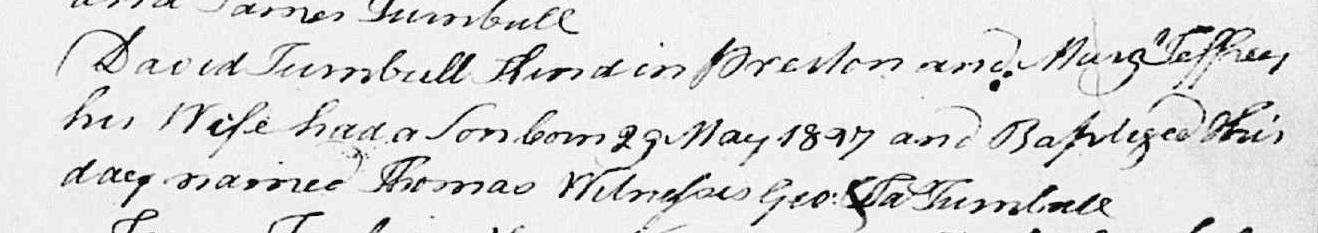 and James Turnbull
David Turnbull Hind in Preston and Marg.t Jeffrey
his Wife had a Son born 29 May 1827 and Baptized this
day named Thomas Witnesses Geo: & Ja.s Turnbull